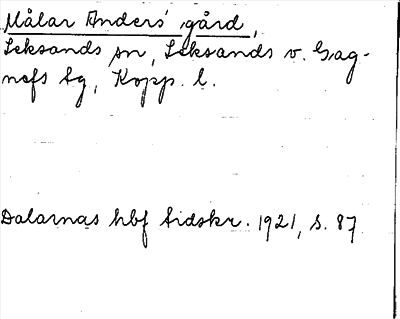 Målar Anders' gård,
Leksands sn, Leksands v. Gag-
nefs tg, Kopp. l.
Dalarnas hbf tidskr. 1921, s. 87